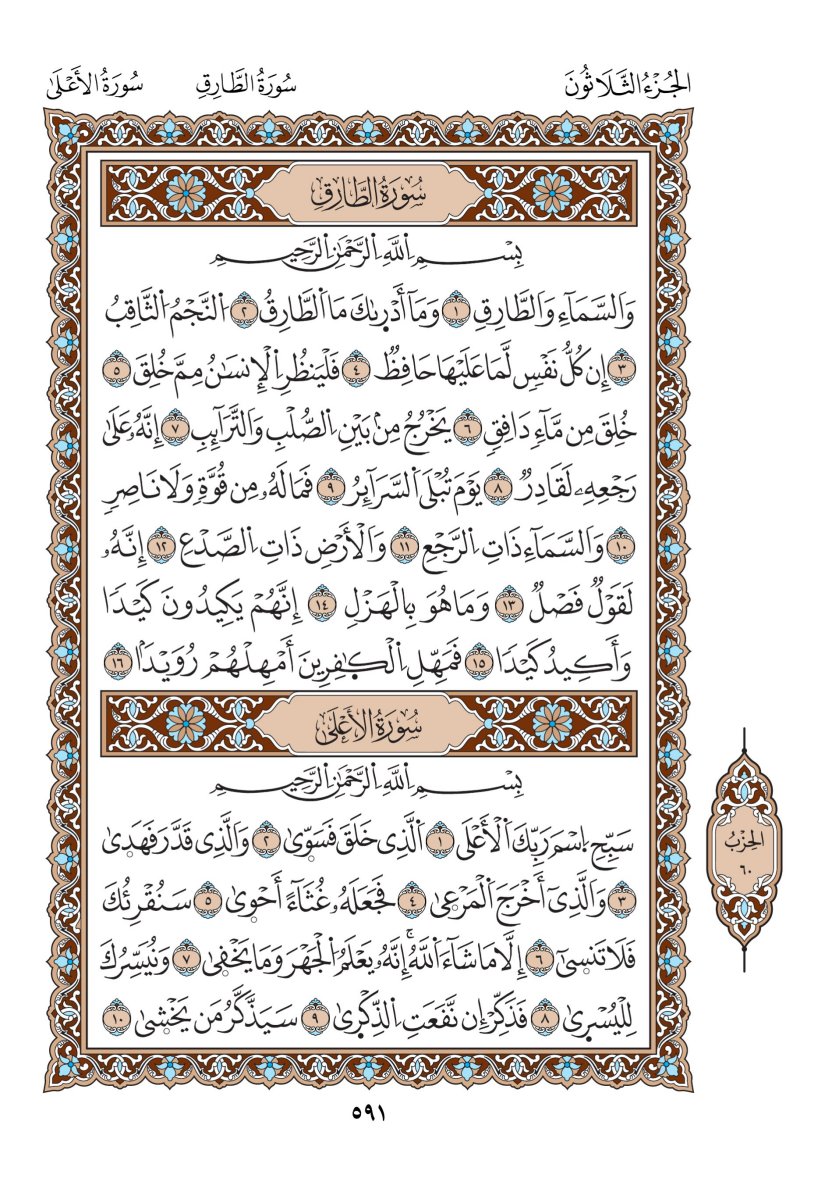 الجُزْءُ الثَّلَاثُونَ سُورَةُ الطَّارِقِ سُورَةُ الأَعْلَىٰ
سُورَةُ الطَّارِقِ
بِسْمِ اللَّهِ الرَّحْمَٰنِ الرَّحِيمِ
وَالسَّمَآءِ وَالطَّارِقِ ١ وَمَآ أَدْرىٰكَ مَا الطَّارِقُ ٢ النَّجْمُ الثَّاقِبُ
٣ إِن كُلُّ نَفْسٍ لَّمَا عَلَيْهَا حَافِظٌ ٤ فَلْيَنظُرِ الْإِنسَٰنُ مِمَّ خُلِقَ ٥
خُلِقَ مِن مَّآءٍ دَافِقٍ ٦ يَخْرُجُ مِنۢ بَيْنِ الصُّلْبِ وَالتَّرَآئِبِ ٧ إِنَّهُۥ عَلَىٰ
رَجْعِهِۦ لَقَادِرٌ ٨ يَوْمَ تُبْلَى السَّرَآئِرُ ٩ فَمَا لَهُۥ مِن قُوَّةٍ وَلَا نَاصِرٍ
١٠ وَالسَّمَآءِ ذَاتِ الرَّجْعِ ١١ وَالْأَرْضِ ذَاتِ الصَّدْعِ ١٢ إِنَّهُۥ
لَقَوْلٌ فَصْلٌ ١٣ وَمَا هُوَ بِالْهَزْلِ ١٤ إِنَّهُمْ يَكِيدُونَ كَيْدًا
وَأَكِيدُ كَيْدًا ١٥ فَمَهِّلِ الْكٰفِرِينَ أَمْهِلْهُمْ رُوَيْدًا ١٦
سُورَةُ الأَعْلَىٰ
بِسْمِ اللَّهِ الرَّحْمَٰنِ الرَّحِيمِ
سَبِّحِ اسْمَ رَبِّكَ الْأَعْلَى ١ الَّذِى خَلَقَ فَسَوّىٰ ٢ وَالَّذِى قَدَّرَ فَهَدىٰ
٣ وَالَّذِىٓ أَخْرَجَ الْمَرْعىٰ ٤ فَجَعَلَهُۥ غُثَآءً أَحْوىٰ ٥ سَنُقْرِئُكَ
فَلَا تَنسىٰٓ ٦ إِلَّا مَا شَآءَ اللَّهُۚ إِنَّهُۥ يَعْلَمُ الْجَهْرَ وَمَا يَخْفىٰ ٧ وَنُيَسِّرُكَ
لِلْيُسْرىٰ ٨ فَذَكِّرْ إِن نَّفَعَتِ الذِّكْرىٰ ٩ سَيَذَّكَّرُ مَن يَخْشىٰ ١٠
الحِزْبُ
٦٠
٥٩١